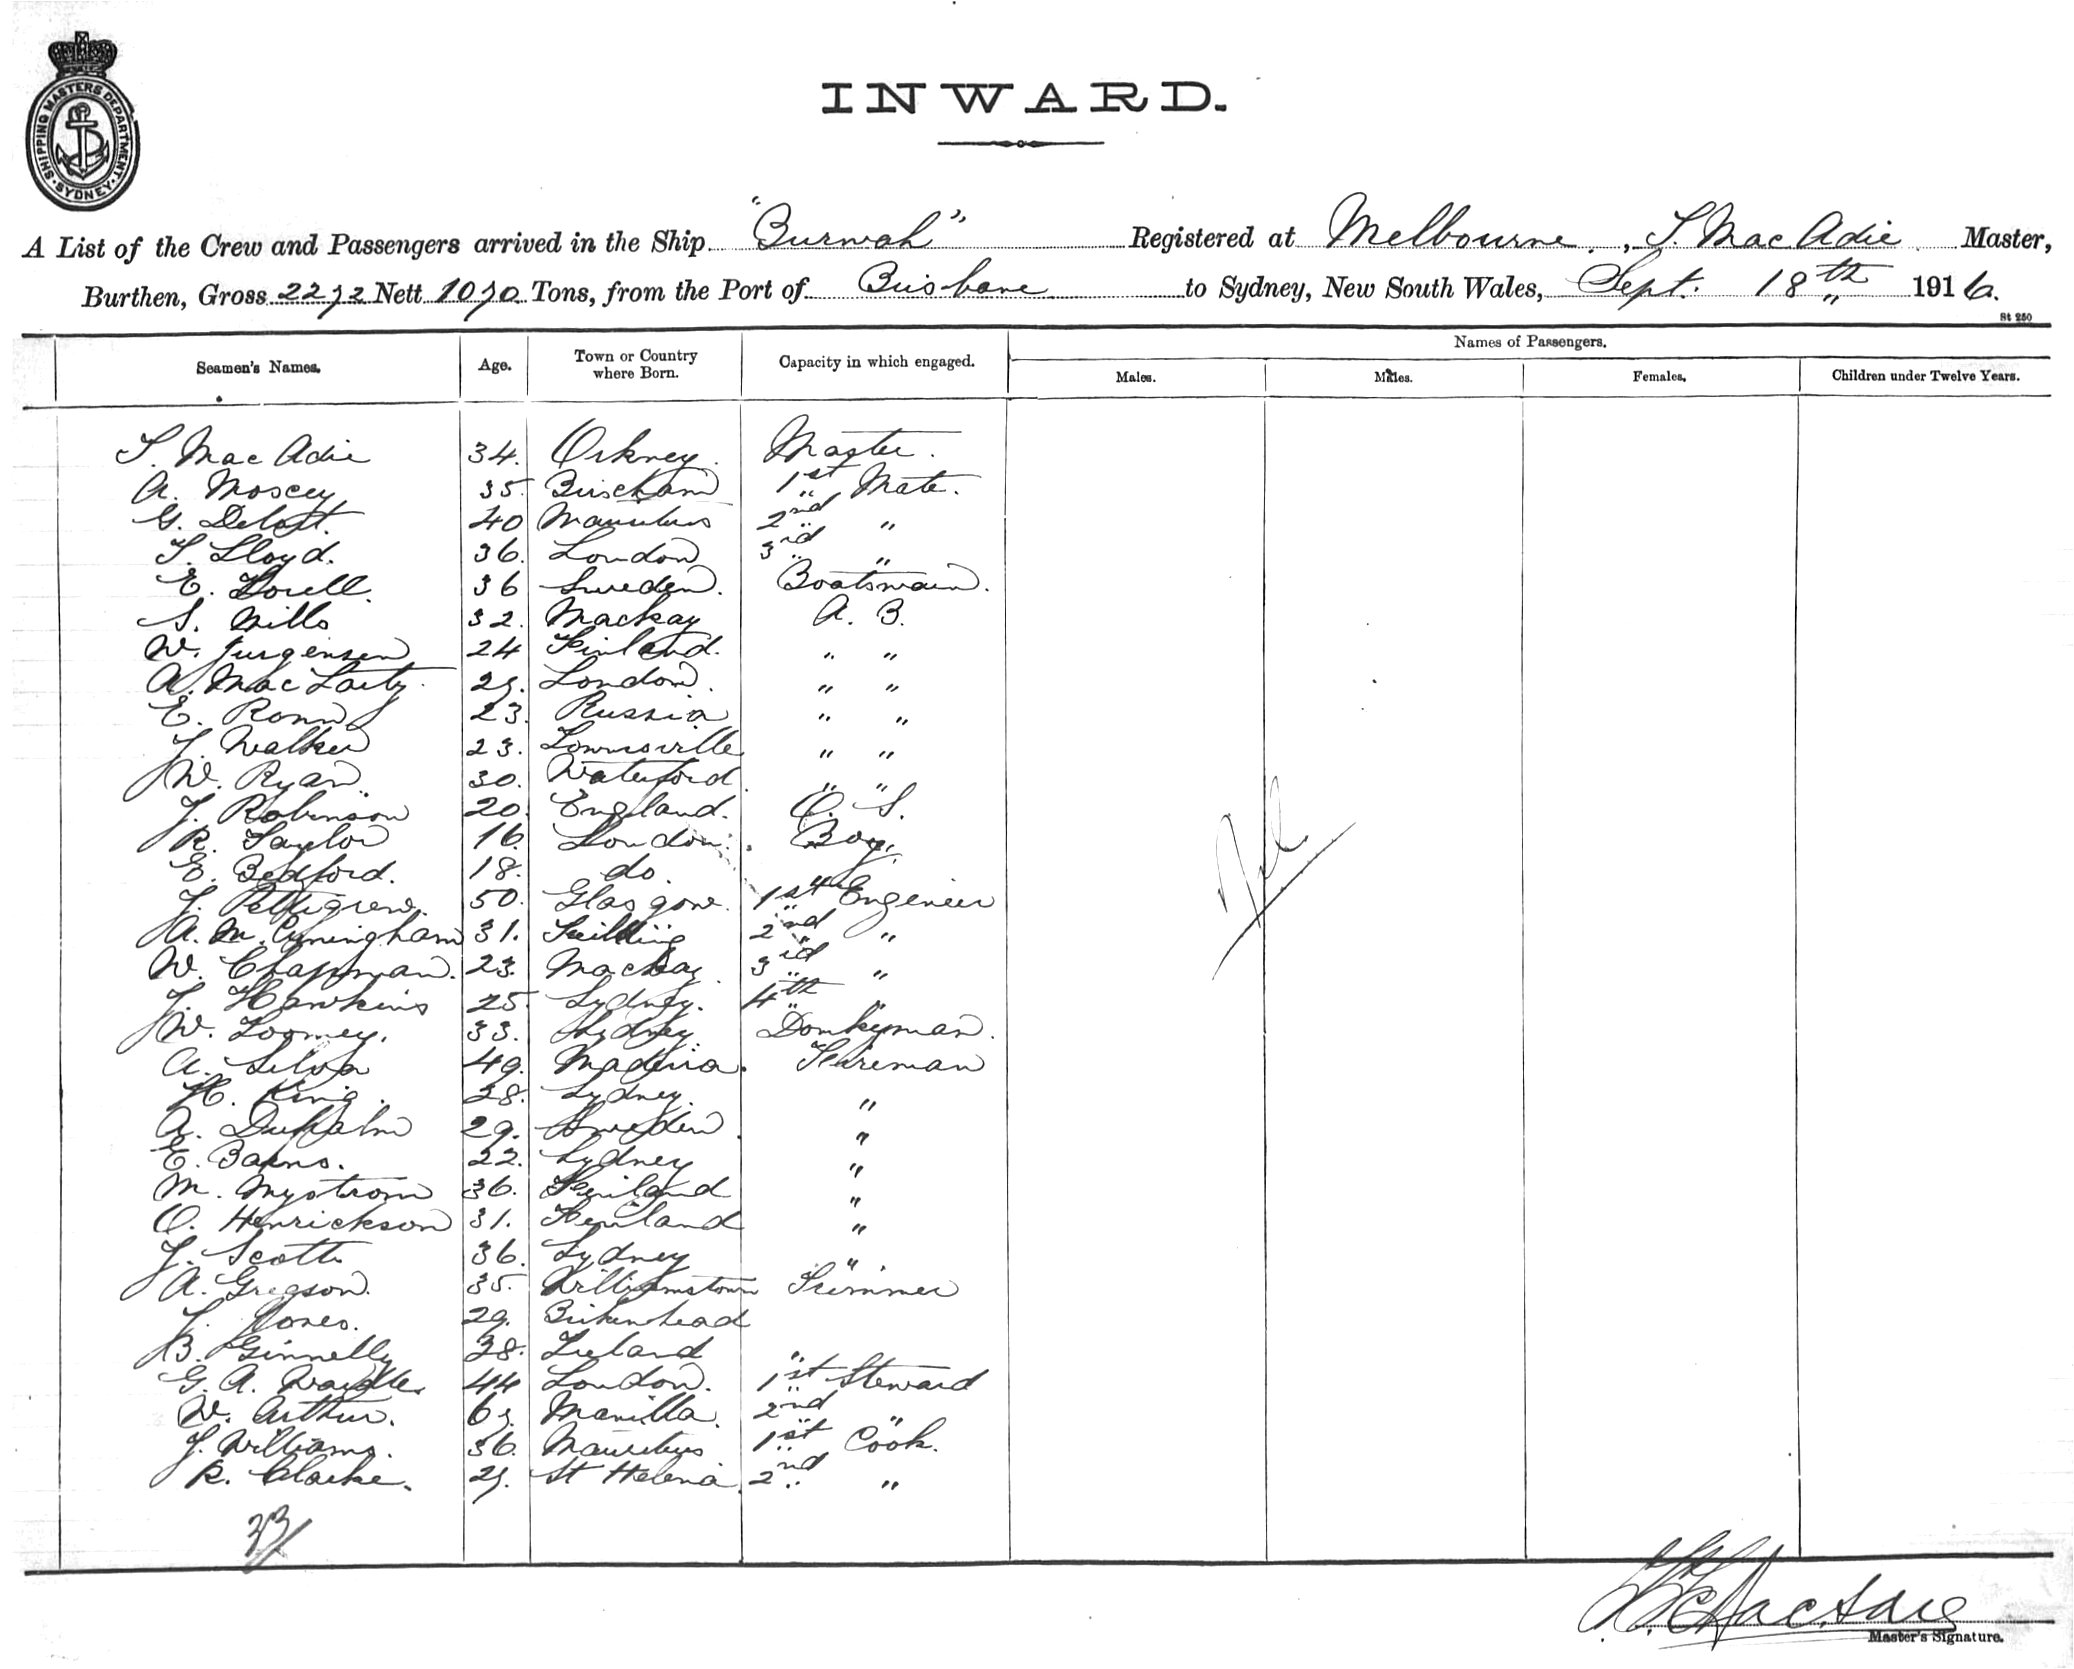 SHIPPING MASTERS DEPARTMENT. SYDNEY.
INWARD.
A List of the Crew and Passengers arrived in the Ship "Burwah" Registered at Melbourne, T. Mac Adie Master,
Burthen, Gross 2272 Nett 1070 Tons, from the Port of Brisbane to Sydney, New South Wales, Sept. 18th 1916.
St 250
Seamen's Names. Age. Town or Country where Born. Capacity in which engaged. Names of Passengers.
Males. Males. Females. Children under Twelve Years.
T. Mac Adie 34. Orkney. Master.
A. Moscey 35 1st Mate.
G. 40 Mauritius 2nd "
T. Lloyd. 36. London 3rd "
E. 36 Sweden. Boatswain.
S. Mills 32. Mackay A. B.
W. Jurgensen 24 Finland. " "
A. Mac Larty 27. London. " "
E. Ronn 23. Russia " "
J. Walker 23. Townsville " "
W. Ryan. 30. Waterford " "
J. Robinson 20. England. O. S.
R. Taylor 16. London. Boy.
E. Bedford. 18. do. "
J. Pettigrew. 50. Glasgow. 1st Engineer
A. M. Cuningham 31. 2nd "
W. Chapman. 23. Mackay 3rd "
J. Hawkins 25. Sydney. 4th "
W. Loomey. 33. Sydney. Donkyman.
A. Silva 49. Madeira. Fireman
H. King. 28. Sydney. "
A. 29. Sweden "
E. Bakns. 22. Sydney "
M. Nystrom 36. Finland "
O. Henrickson 31. Finland "
J. Scott 36. Sydney "
A. Gregson. 35. Williamstown Trimmer
J. Jones. 29. Birkenhead
B. Ginnelly 38. Ireland "
G. A. Wardle. 44 London. 1st Steward
W. Arthur. 67. Manilla. 2nd "
J. Williams. 36. Mauritius 1st Cook.
R. Clarke. 27. St Helena. 2nd "
Nil
33/
Master's Signature.